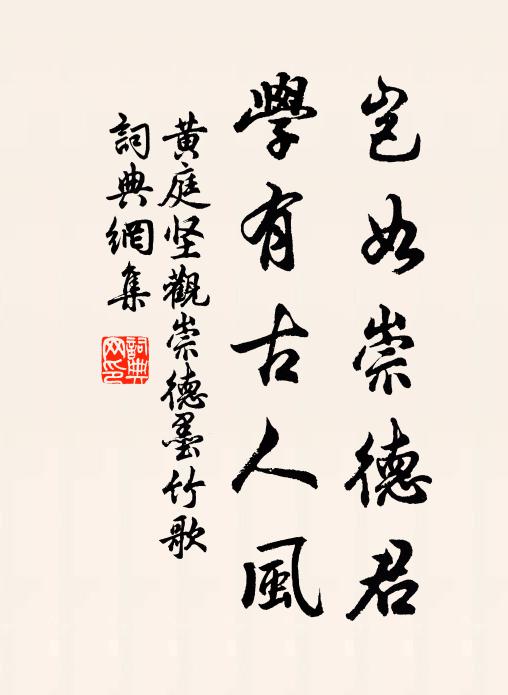 豈如崇德君
學有古人風
黄庭坚觀崇德墨竹歌
詞典網集
詞典网印